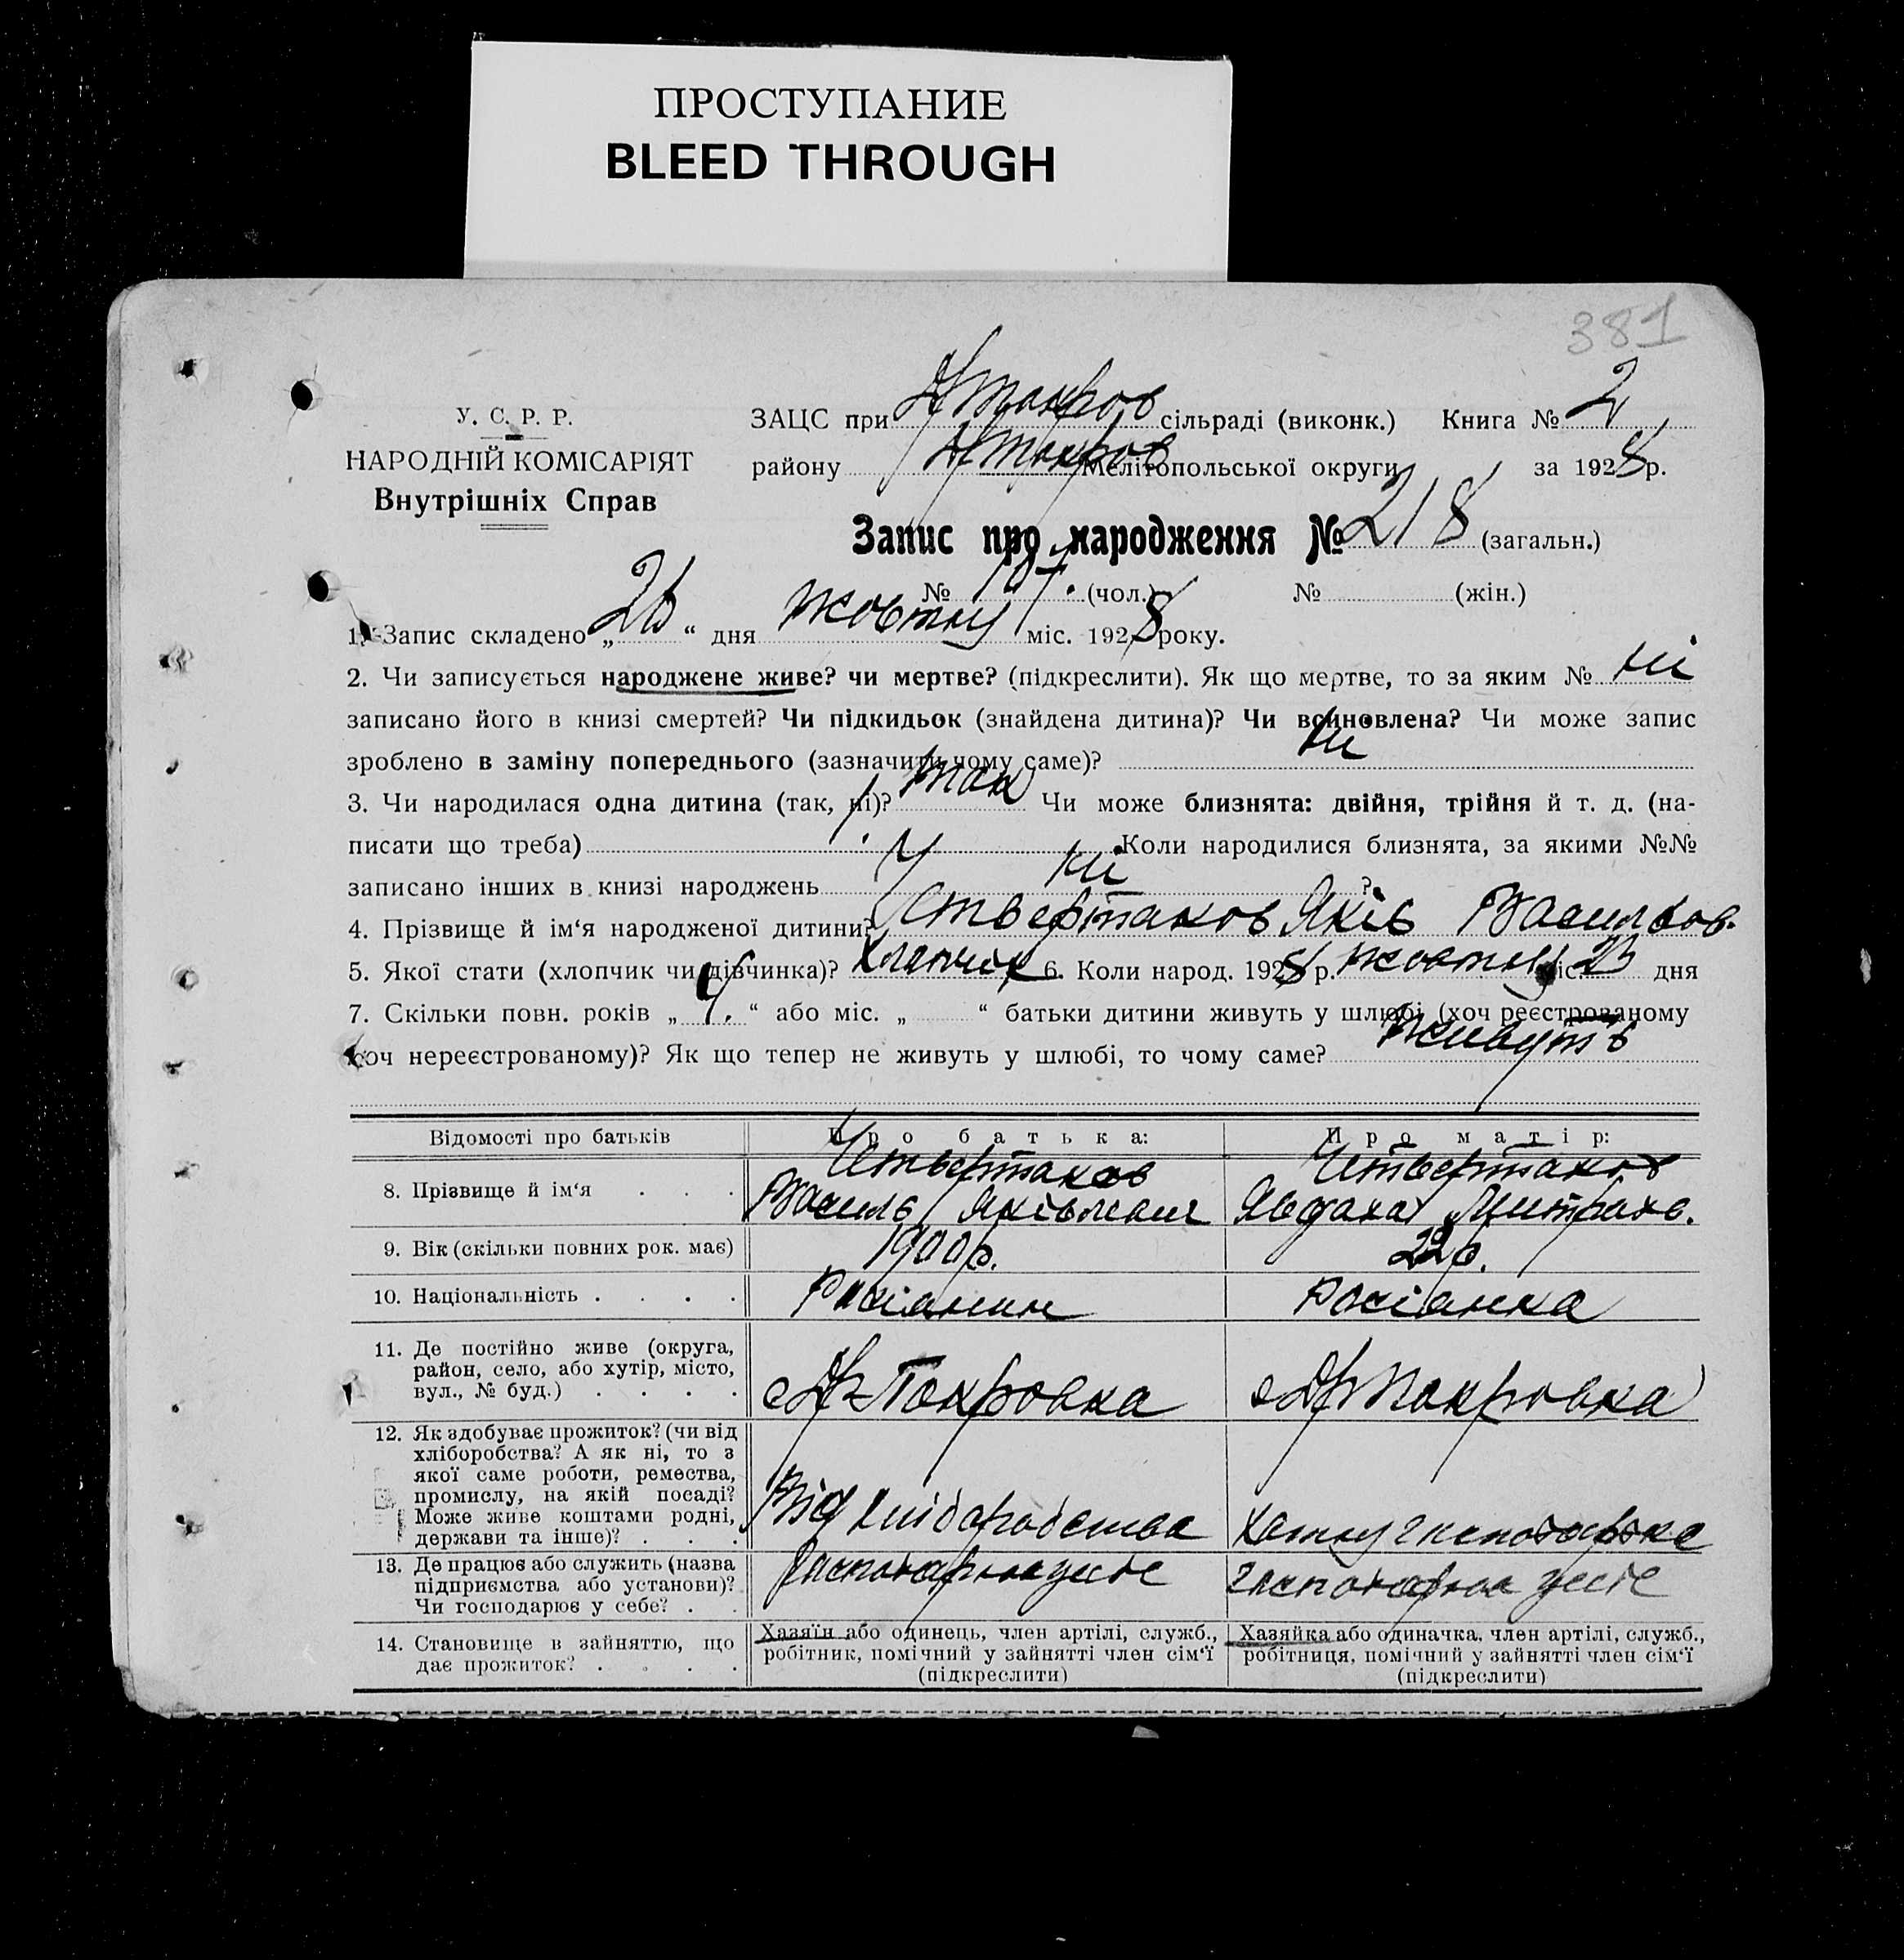 ПРОСТУПАНИЕ
BLEED THROUGH
381
У. С. Р. Р.
НАРОДНІЙ КОМІСАРІЯТ
Внутрішніх Справ
ЗАЦС при сільраді (виконк.) Книга № 2
району Мелітопольської округи за 1928 р.
Запис про народження № 218 (загальн.)
№ 107. (чол.) № (жін.)
1. Запис складено „ “ дня жовтня міс. 1928 року.
2. Чи записується народжене живе? чи мертве? (підкреслити). Як що мертве, то за яким № ні
записано його в книзі смертей? Чи підкидьок (знайдена дитина)? Чи всиновлена? Чи може запис
зроблено в заміну попереднього (зазначити чому саме)? ні
3. Чи народилася одна дитина (так, ні)? так Чи може близнята: двійня, трійня й т. д. (на-
писати що треба) Коли народилися близнята, за якими №№
записано інших в книзі народжень ні ?
4. Прізвище й ім‘я народженої дитини? Четвертаков Яків Васильов.
5. Якої стати (хлопчик чи дівчинка)? Хлопчик 6. Коли народ. 1928 р. жовтня міс. дня
7. Скільки повн. років „ 4. “ або міс. „ “ батьки дитини живуть у шлюбі (хоч реєстрованому
хоч нереєстрованому)? Як що тепер не живуть у шлюбі, то чому саме? живуть
Відомості про батьків Про батька: Про матір:
8. Прізвище й ім‘я . . . Четвертаков Василь Яківлевич Четвертаков Явдаха Митрахв.
9. Вік (скільки повних рок. має) 1900р. 22р.
10. Національність . . . . Росіянин Росіянка
11. Де постійно живе (округа,
район, село, або хутір, місто,
вул., № буд.) . . . . с Др-Покровка с Др Покровка
12. Як здобуває прожиток? (чи від
хліборобства? А як ні, то з
якої саме роботи, ремества,
промислу, на якій посаді?
Може живе коштами родні,
держави та інше)? . . . Від хліборобства Хатну
13. Де працює або служить (назва
підприємства або установи)?
Чи господарює у себе? . .
14. Становище в зайняттю, що
дає прожиток? . . . .
Хазяїн або одинець, член артілі, служб.,
робітник, помічний у зайнятті член сім‘ї
(підкреслити)
Хазяйка або одиначка, член артілі, служб.,
робітниця, помічний у зайнятті член сім‘ї
(підкреслити)